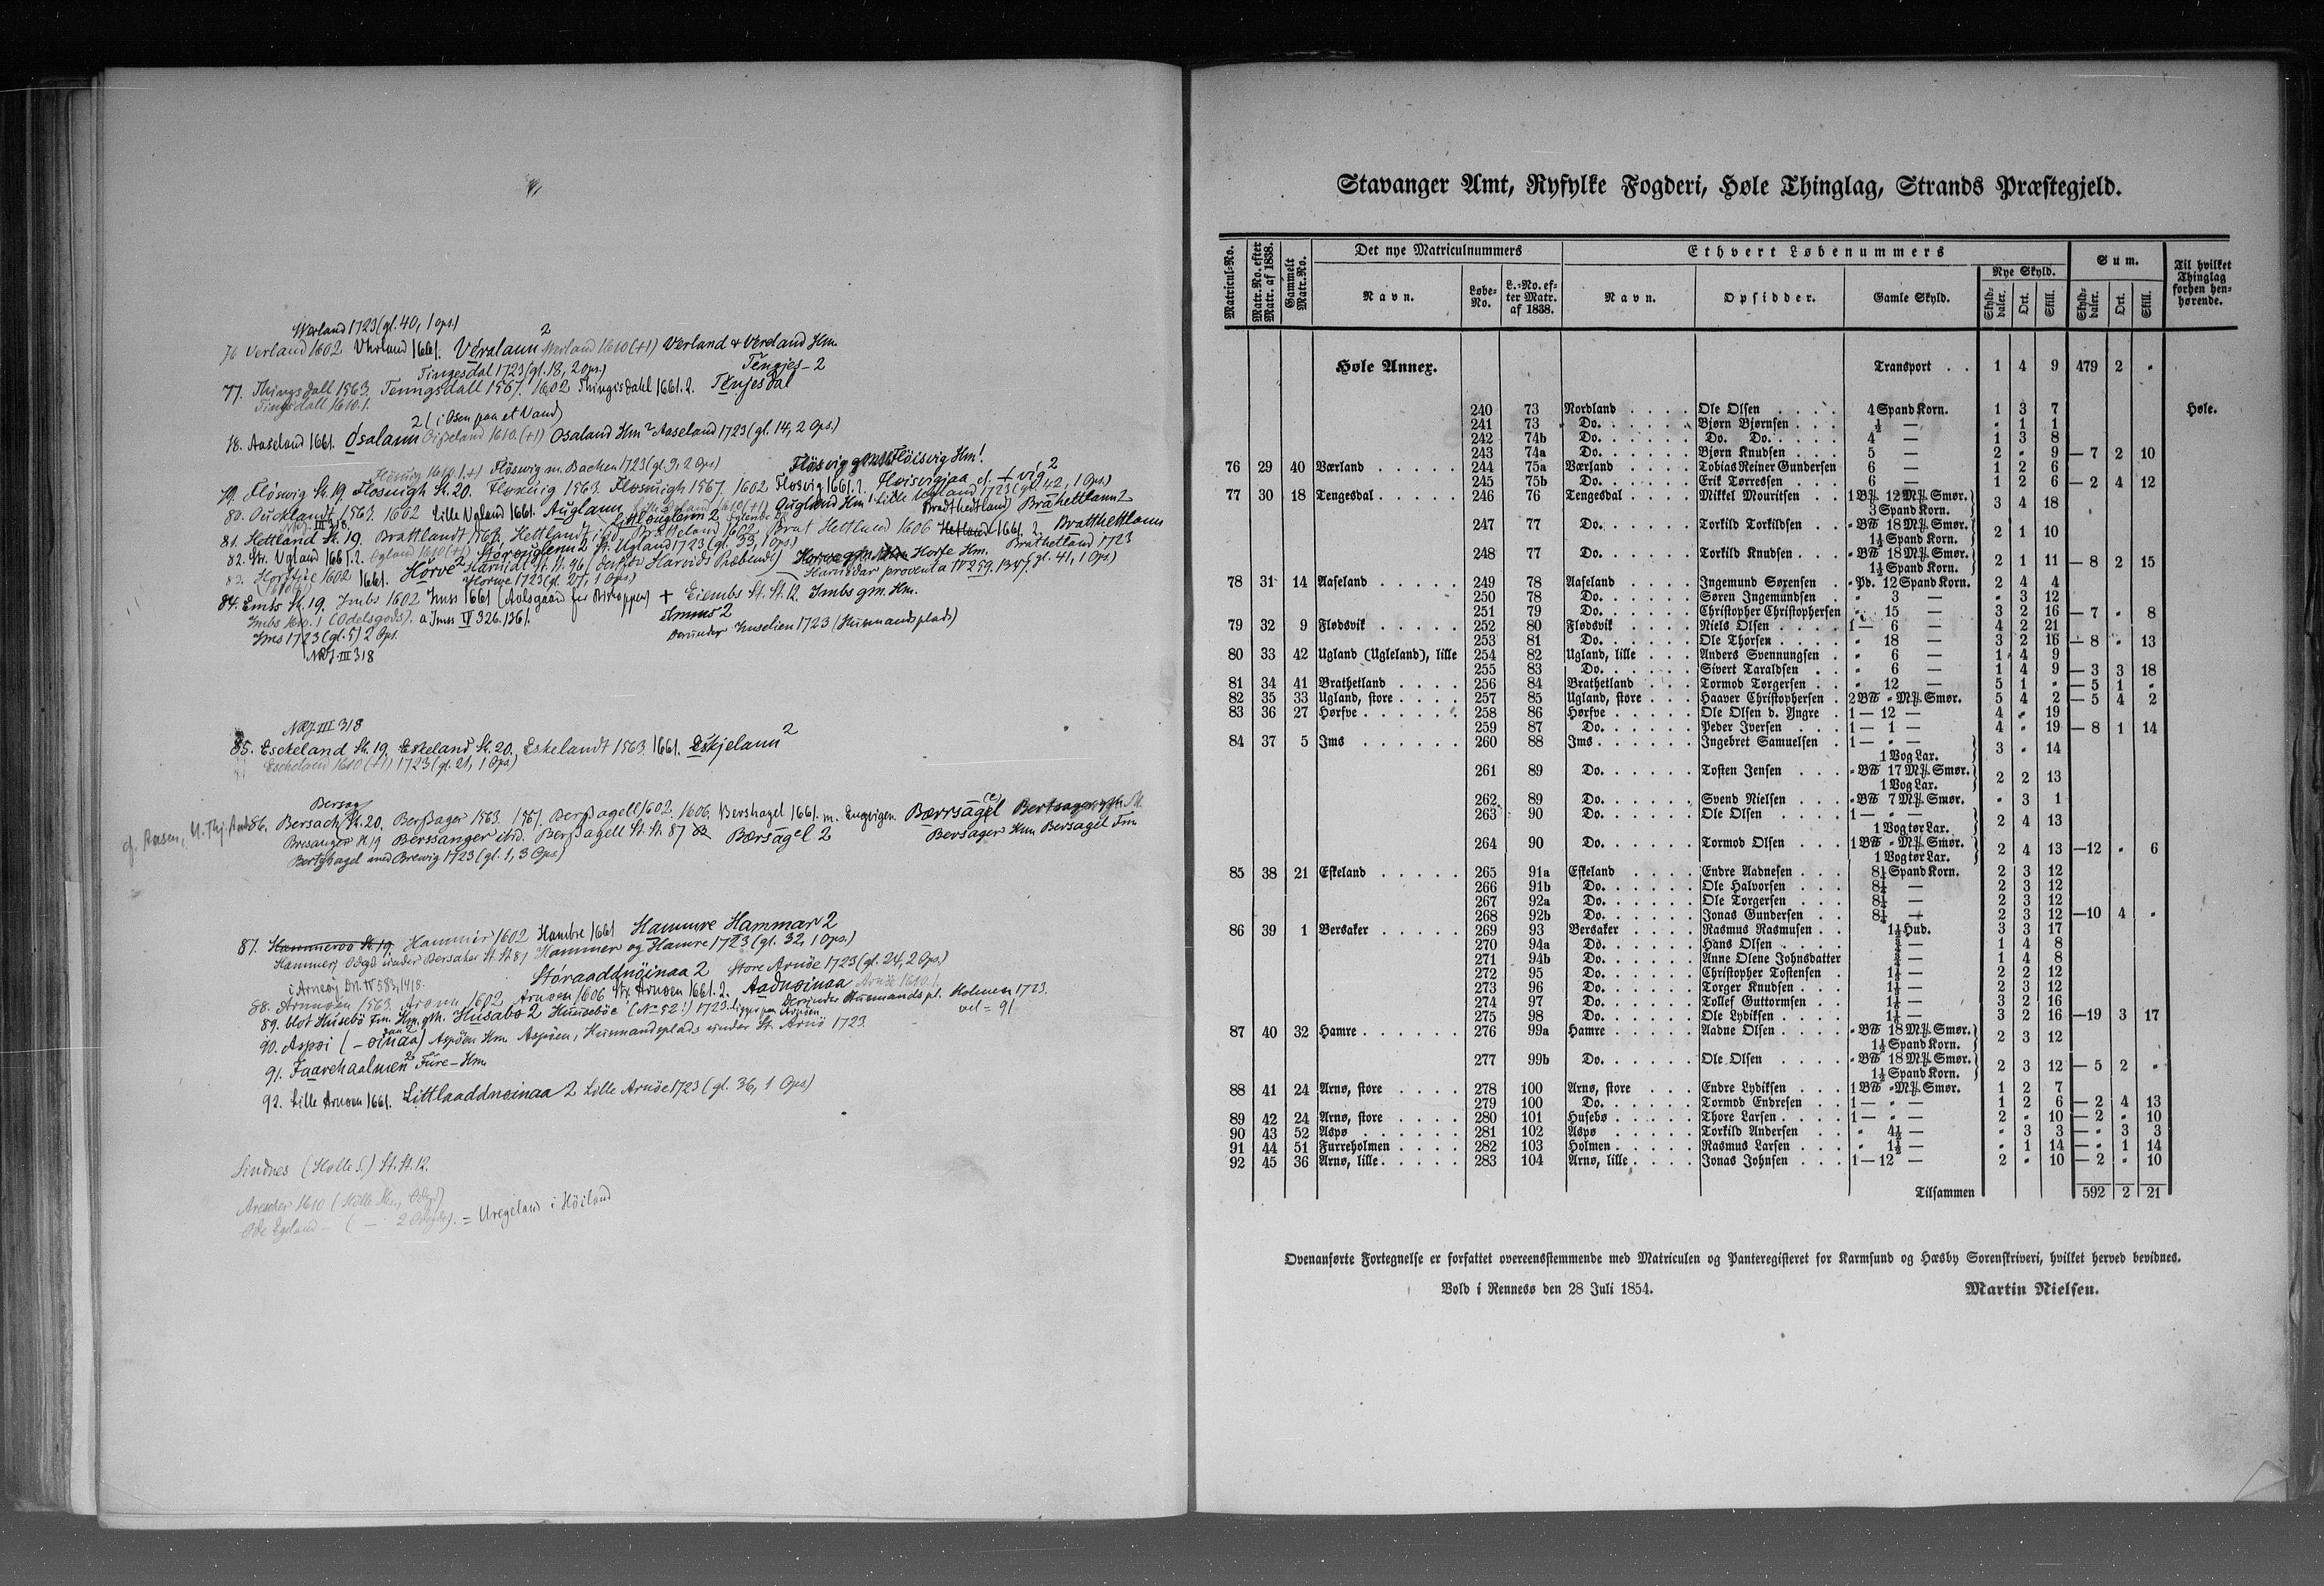 Werland 1723 (gl. 40, 1 Ops.)
76 Verland 1602 Vhrland 1661. Vǽralann 2 Werland 1610 (+1) Verland & Verdland Hm.
Tingesdal 1723 (gl. 18, 2 Ops.) Tengjes- 2
77. Thingsdall 1563. Tenngsdall 1567. 1602 Thingisdahl 1661. 2. Tenjesdal
Tingsdall 1610. 1.
2 (i Osen paa et Vand)
78. Aaseland 1661. Osalann 1610. (+1) Osaland Hm Aaseland 1723 (gl. 14, 2 Ops.)
Flöswig m. Bachen 1723 (gl. 9, 2 Ops)
79. Flóswig St. 19. Flosuigh St. 20. Floxuig 1563. Flosuigh 1567. 1602 Flosvig 1661. 2.
80. Oucklandt 1563. 1602 Lille Ugland 1661. Auglann
81. Hettland St. 19. Brattlandt 1563. Hettlandt
82. Str. Ugland 1661. 2. Storauglenn 2 St. Ugland 1723 (gl. 33, 1 Ops.)
83. 1602 1661. Horve 2
Horwe 1723 (gl. 27, 1 Ops.)
84. Embs St. 19. Imbs 1602 Imss 1661 (Avlsgaard for Biskoppen) + Eiembs St. St. 12. Imbs gm. Hm.
Imbs 1610. 1 (Odelsgods). a Imss IV 326. 1361. Imms 2
Ims 1723 (gl. 5) 2 Ops. Derunder Imselien 1723 (Huusmandsplads)
NRJ. III 318
NRJ III 318
85. Eskeland St. 19. Eskeland St. 20. Eskelandt 1563. 1661. Eskjelann 2
Escheland 1610 (+1) 1723 (gl. 21, 1 Ops)
Bersag
86. Bersach St. 20. Berßager 1563. 1567. Berßagell 1602. 1606. Bershagel 1661. m. Engvigen. Bærrsagel
Bresanger St 19 Berssanger ibid. Berßagell St. St. 87 Bærsagel 2 Bersager Hm Bersagel Fm
Bertzhagel med Brewig 1723 (gl. 1, 3 Ops.)
87. Hammeroo St. 19. Hammer 1602 Hambre 1661 Hammre Hammar 2
Hammer, Ödegd under Bersaker St. St 81 Hammer og Hamre 1723 (gl. 32, 1 Ops.)
Stóraaddnöinaa 2 Store Arnöe 1723 (gl. 24, 2 Ops.)
i Arneoy Dn. IV 583, 1418.
88. Arnnöen 1563. Aroenn 1602 Arnoen 1606 Str. Arnoen 1661. 2. Aadnoinaa Arnöe 1610. 1.
89. blot Húsebö Fm. Hm. gm. Húsabø 2 Huuseböe (No 52!) 1723. Ligger paa Arnöen. Derunder Huusmandspl. Holmen 1723.
vel = 91.
90. Aspøi (- øinaa) Aspöen Hm. Aspöen, Huusmandsplads under St. Arnö 1723.
91. Faarehaalmen 2 Fure- Hm.
92. Lille Arnoen 1661. Littlaaddnøinaa 2 Lille Arnöe 1723 (gl. 36, 1 Ops)
Lindnes (Holle S.) St. St. 12.
Ode Egeland - ( - 2 Odegde). = Uregeland i Höiland
Stavanger Amt, Ryfylke Fogderi, Høle Thinglag, Strands Præstegjeld.
Matricul-No. Matr.No. efter Matr. af 1838. Gammelt Matr.No. Det nye Matriculnummers Ethvert Løbenummers Sum. Til hvilket Thinglag forhen henhørende.
Navn. Løbe-No. L.-No. efter Matr. af 1838. Navn. Opsidder. Gamle Skyld. Nye Skyld. Skylddaler. Ort. Skill. Skylddaler. Ort. Skill.
Høle Annex. Transport . . 1 4 9 479 2 "
240 73 Nordland . . . . Ole Olsen . . . . 4 Spand Korn. 1 3 7 Høle.
241 73 Do. . . . . . Bjørn Bjørnsen . . . ½ — " 1 1
242 74b Do. . . . . . Do. Do. . . . . 4 — 1 3 8
243 74a Do. . . . . . Bjørn Knudsen . . . 5 — 2 " 9 — 7 2 10
76 29 40 Værland . . . . . 244 75a Værland . . . . Tobias Reiner Gundersen 6 — 1 2 6
245 75b Do. . . . . . Erik Tørressen . . . 6 — 1 2 6 — 2 4 12
77 30 18 Tengesdal . . . . . 246 76 Tengesdal . . . . Mikkel Mouritsen . . 1 B℔ 12 M℔ Smør. 3 Spand Korn. 3 4 18
247 77 Do. . . . . . Torkild Torkildsen . . " B℔ 18 M℔ Smør. 1½ Spand Korn. 2 1 10
248 77 Do. . . . . . Torkild Knudsen . . . " B℔ 18 M℔ Smør. 1½ Spand Korn. 2 1 11 — 8 2 15
78 31 14 Aaseland . . . . . 249 78 Aaseland . . . . Ingemund Sørensen . . " Pd. 12 Spand Korn. 2 4 4
250 78 Do. . . . . . Søren Ingemundsen . " 3 — " 3 12
251 79 Do. . . . . . Christopher Christophersen " 15 — 3 2 16 — 7 " 8
79 32 9 Flødsvik . . . . . 252 80 Flødsvik . . . . Niels Olsen . . . . 1 — 6 — 4 2 21
253 81 Do. . . . . . Ole Thorsen . . . . " 18 — 3 2 16 — 8 " 13
80 33 42 Ugland (Ugleland), lille 254 82 Ugland, lille . . . Anders Svennungsen . " 6 — 1 4 9
255 83 Do. . . . . . Sivert Taraldsen . . " 6 — 1 4 9 — 3 3 18
81 34 41 Brathetland . . . . 256 84 Brathetland . . . Tormod Torgersen . . " 12 — 5 1 " — 5 1 "
82 35 33 Ugland, store . . . . 257 85 Ugland, store . . . Haaver Christophersen . 2 B℔ " M℔ Smør. 5 4 2 — 5 4 2
83 36 27 Hørfve . . . . . . 258 86 Hørfve . . . . . Ole Olsen d. Yngre . 1 — 12 — 4 " 19
259 87 Do. . . . . . Peder Iversen . . . 1 — 1 — 4 " 19 — 8 1 14
84 37 5 Ims . . . . . . 260 88 Ims . . . . . . Ingebret Samuelsen . 1 — " — 1 Vog Lax. 3 " 14
261 89 Do. . . . . . Tosten Jensen . . . " B℔ 17 M℔ Smør. 1 Vog Lax. 2 2 13
262 89 Do. . . . . . Svend Nielsen . . . " B℔ 7 M℔ Smør. " 3 1
263 90 Do. . . . . . Ole Olsen . . . . 1 — " — 1 Vog tør Lax. 2 4 13
264 90 Do. . . . . . Tormod Olsen . . . 1 B℔ " M℔ Smør. 1 Vog tør Lax. 2 4 13 — 12 " 6
85 38 21 Eskeland . . . . . 265 91a Eskeland . . . . Endre Aadnesen . . . 8¼ Spand Korn. 2 3 12
266 91b Do. . . . . . Ole Halvorsen . . . 8¼ — 2 3 12
267 92a Do. . . . . . Ole Torgersen . . . 8¼ — 2 3 12
268 92b Do. . . . . . Jonas Gundersen . . 8¼ — 2 3 12 — 10 4 "
86 39 1 Bersaker . . . . . 269 93 Bersaker . . . . Rasmus Rasmusen . . 1½ Hud. 3 3 17
270 94a Do. . . . . . Hans Olsen . . . . ¾ — 1 4 8
271 94b Do. . . . . . Anne Olene Johnsdatter ¾ — 1 4 8
272 95 Do. . . . . . Christopher Tostensen . 1½ — 2 2 12
273 96 Do. . . . . . Torger Knudsen . . . 1½ — 2 3 12
274 97 Do. . . . . . Tollef Guttormsen . . 1½ — 3 2 16
275 98 Do. . . . . . Ole Lydiksen . . . . 1½ — 3 2 16 — 19 3 17
87 40 32 Hamre . . . . . . 276 99a Hamre . . . . . Aadne Olsen . . . . " B℔ 18 M℔ Smør. 1½ Spand Korn. 2 3 12
277 99b Do. . . . . . Ole Olsen . . . . " B℔ 18 M℔ Smør. 1½ Spand Korn. 2 3 12 — 5 2 "
88 41 24 Arnø, store . . . . 278 100 Arnø, store . . . Endre Lydiksen . . . 1 B℔ " M℔ Smør. 1 2 7
279 100 Do. . . . . . Tormod Endresen . . 1 — " — 1 2 6 — 2 4 13
89 42 24 Arnø, store . . . . 280 101 Husebø . . . . . Thore Larsen . . . . 1 — " — 2 " 10 — 2 " 10
90 43 52 Aspø . . . . . . 281 102 Aspø . . . . . Torkild Andersen . . " 4½ — " 3 3 — " 3 3
91 44 51 Furreholmen . . . . 282 103 Holmen . . . . . Rasmus Larsen . . . " 1½ — " 1 14 — " 1 14
92 45 36 Arnø, lille . . . . . 283 104 Arnø, lille . . . . Jonas Johnsen . . . 1 — 12 — 2 " 10 — 2 " 10
Tilsammen 592 2 21
Ovenanførte Fortegnelse er forfattet overeensstemmende med Matriculen og Panteregisteret for Karmsund og Hæsby Sorenskriveri, hvilket herved bevidnes.
Vold i Rennesø den 28 Juli 1854.
Martin Nielsen.